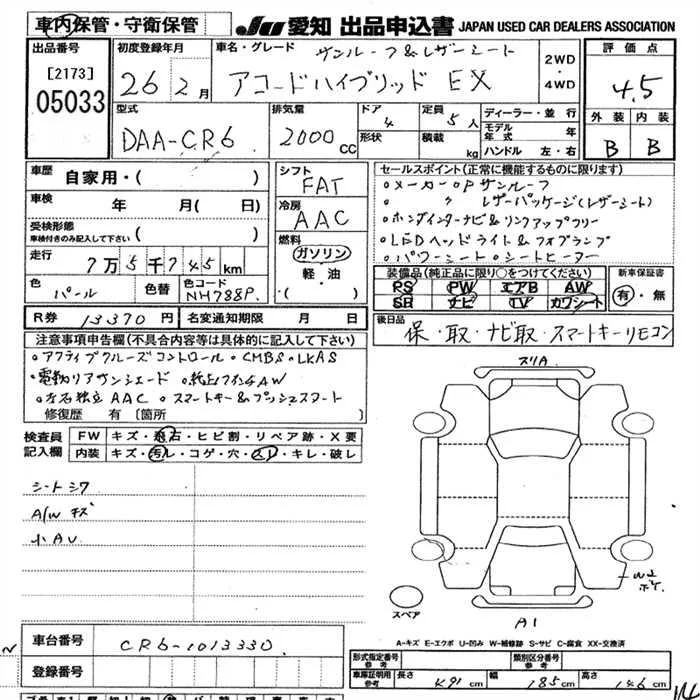 車内保管・守衛保管 JU 愛知 出品申込書 JAPAN USED CAR DEALERS ASSOCIATION
出品番号 初度登録年月 車名・グレード サンルーフ&レザーシート 2WD 評価点
[2173] 26年2月 アコードハイブリッド EX ・ 4.5
05033 4WD
外装 内装
型式 排気量 ドア 4 定員 5人 ディーラー・並行
DAA-CR6 2000cc 形状 積載 kg モデル年式 年 B B
ハンドル 左・右
車歴 自家用・( ) シフト FAT セールスポイント(正常に機能するものに限ります)
車検 年 月(日) 冷房 AAC ・メーカーOPサンルーフ
〃 レザーパッケージ(レザーシート)
受検形態 ( ) ・ホンダインターナビ&リンクアップフリー
車検付きのみ記入して下さい 燃料 ・LEDヘッドライト&フォグランプ
走行 7万5千745km ガソリン ・パワーシート ・シートヒーター
色 パール 色替 色コード NH788P 軽・油 ・( )
装備品(純正品に限り○をつけてください) 新車保証書
PS PW エアB AW 有・無
SR ナビ TV カワシート
R券 13370円 名変通知期限 月 日
後日品 保・取・ナビ取・スマートキーリモコン
注意事項申告欄(不具合内容等は具体的に記入して下さい)
・アクティブクルーズコントロール ・CMBS ・LKAS
・電動リアサンシェード ・純正17インチAW
・左右独立AAC ・スマートキー&プッシュスタート
修復歴 有 〔箇所 〕
検査員 FW キズ・飛石・ヒビ割・リペア跡・X要
記入欄 内装 キズ・汚レ・コゲ・穴・スレ・キレ・破レ
シートシワ
A/W キズ
小AU
スリA
スペア
A1
A-キズ E-エクボ U-凹み W-補修跡 S-サビ C-腐食 XX-交換済
車台番号 CR6-1013330
登録番号
形式指定番号 参考 類別区分番号 参考
車庫証明用 参考 長さ 491cm 幅 185cm 高さ 146cm